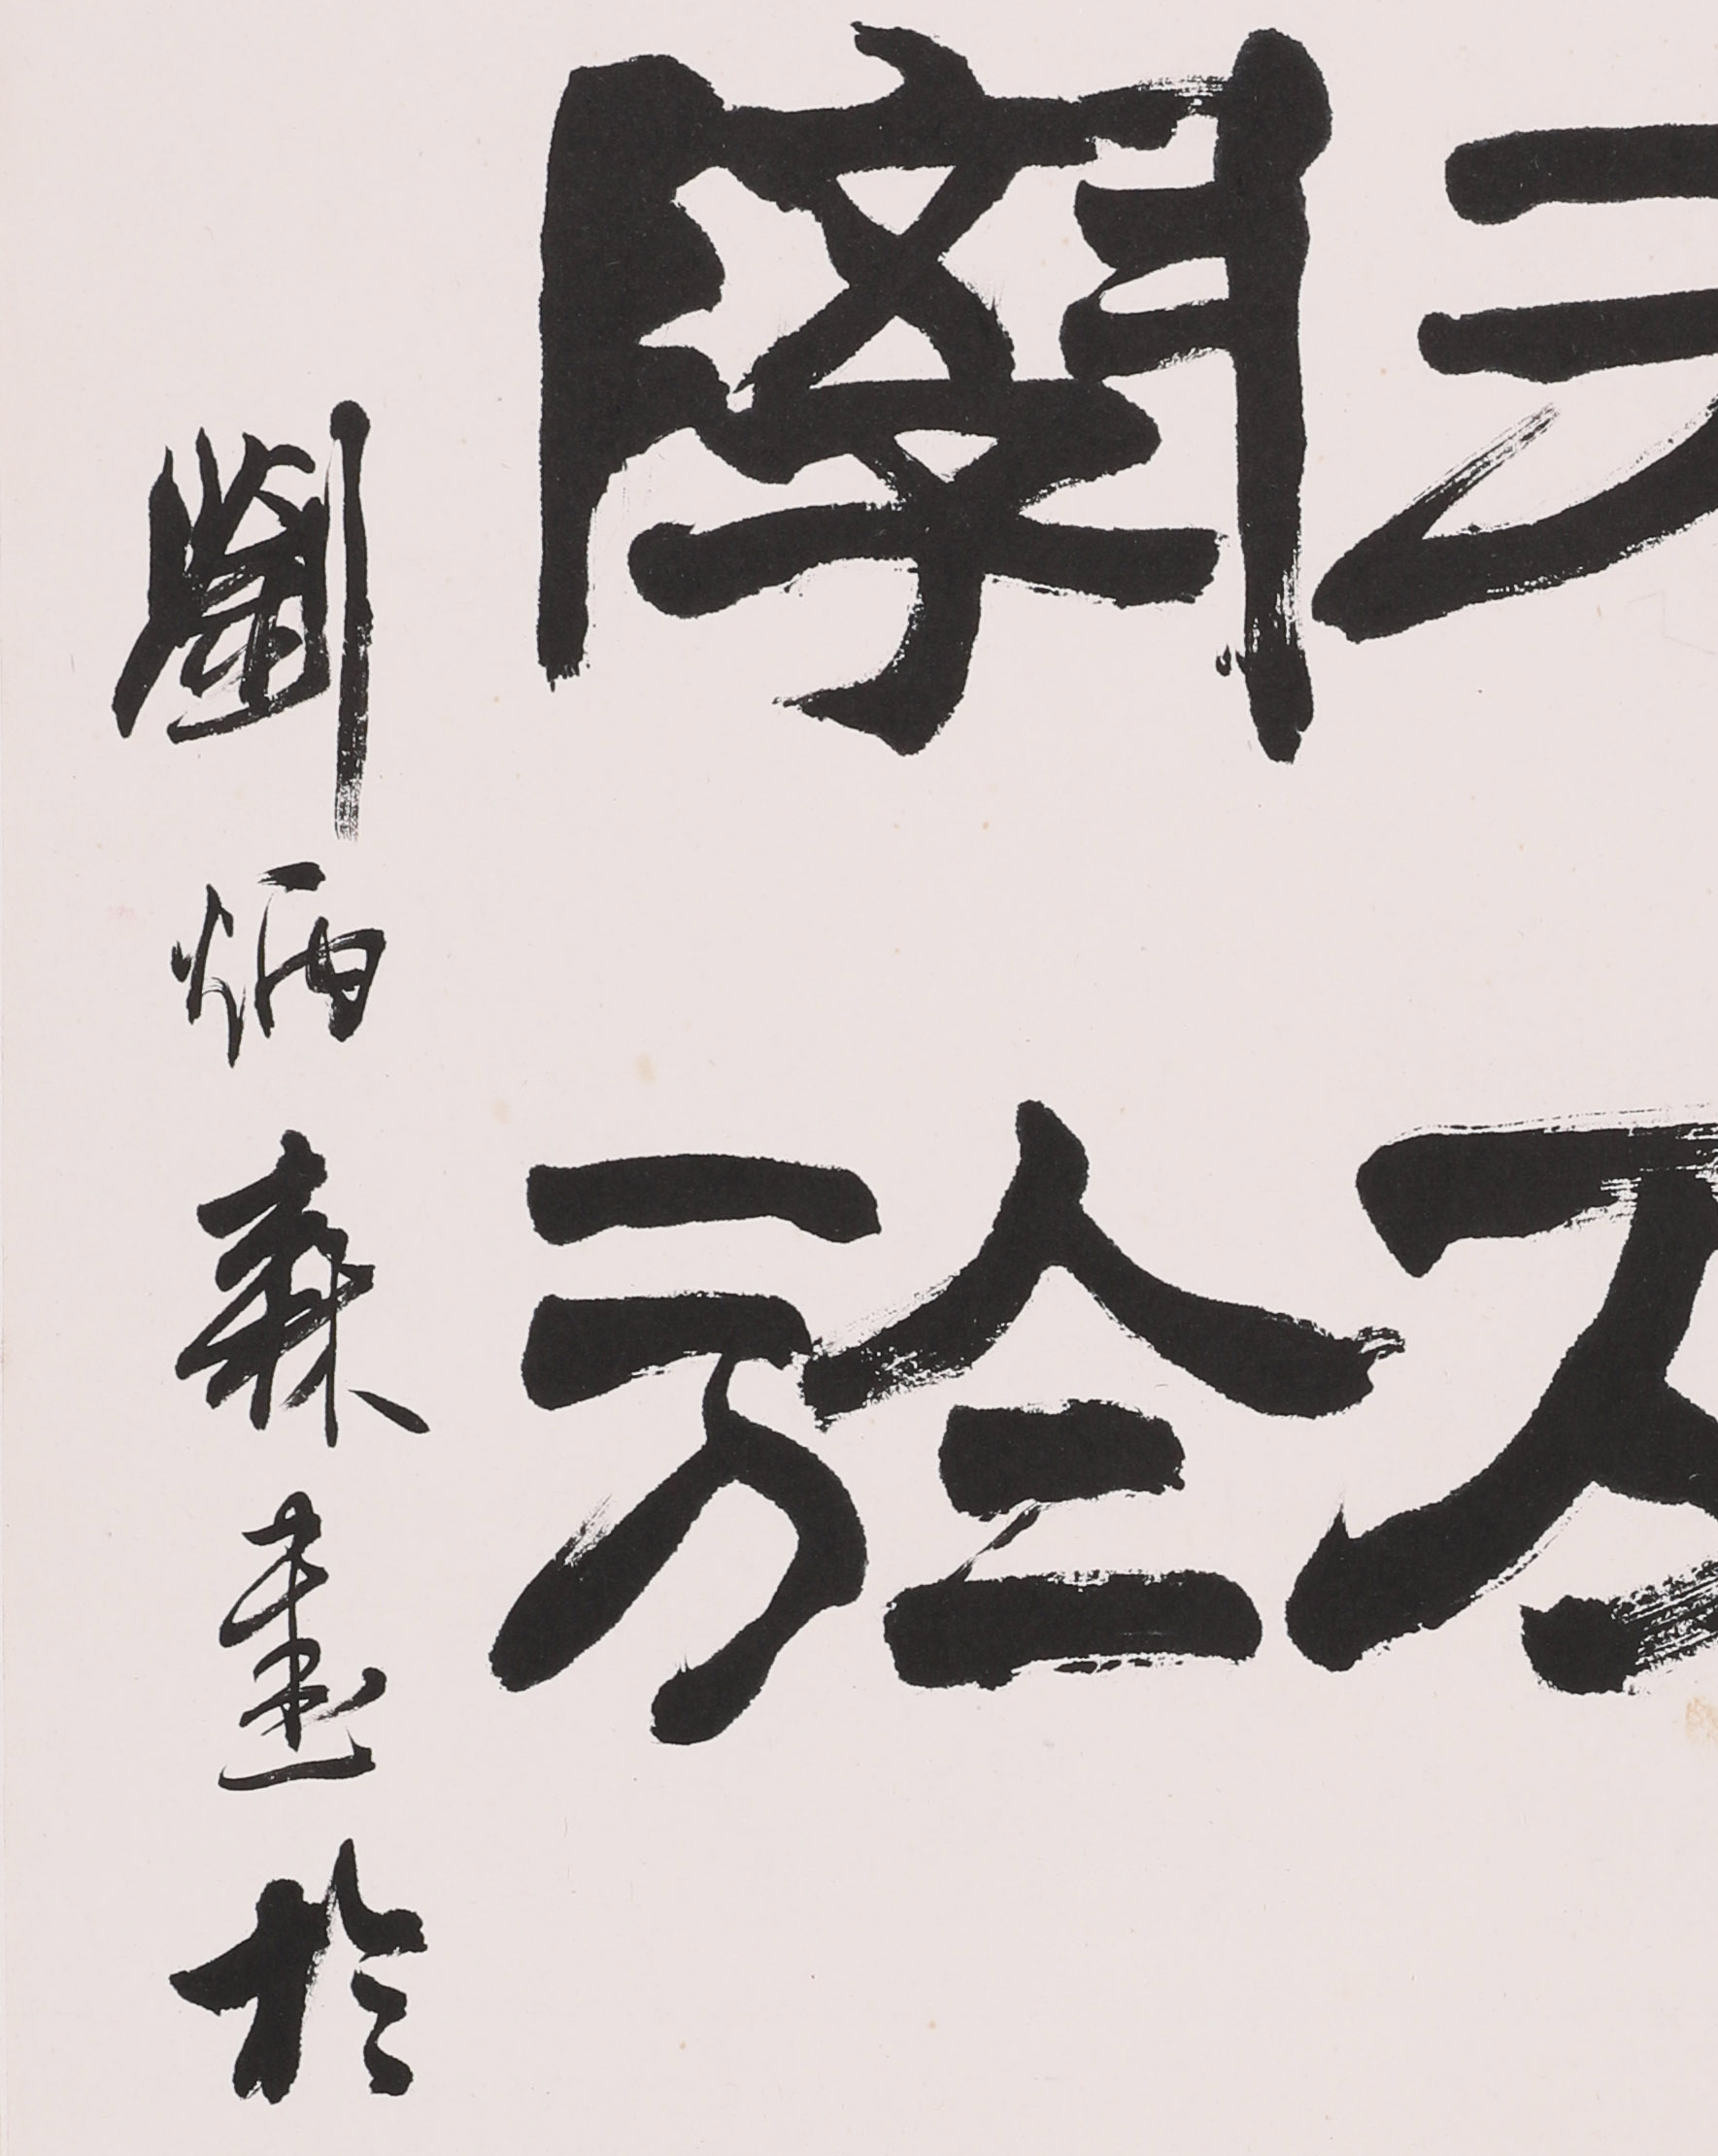 學於
劉炳森書於